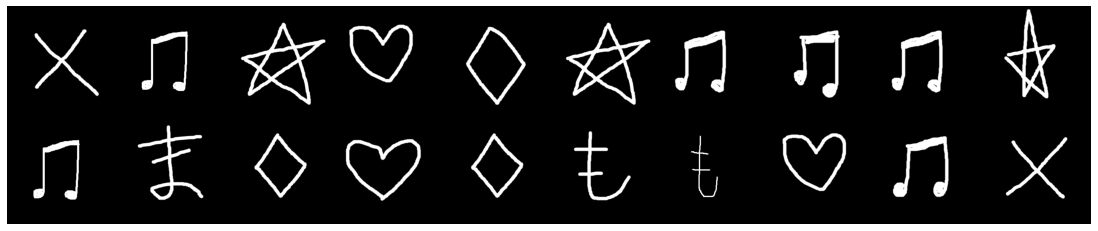 × ♫ ☆ ♡ ◇ ☆ ♫ ♫ ♫ ☆
♫ ま ◇ ♡ ◇ も も ♡ ♫ ×